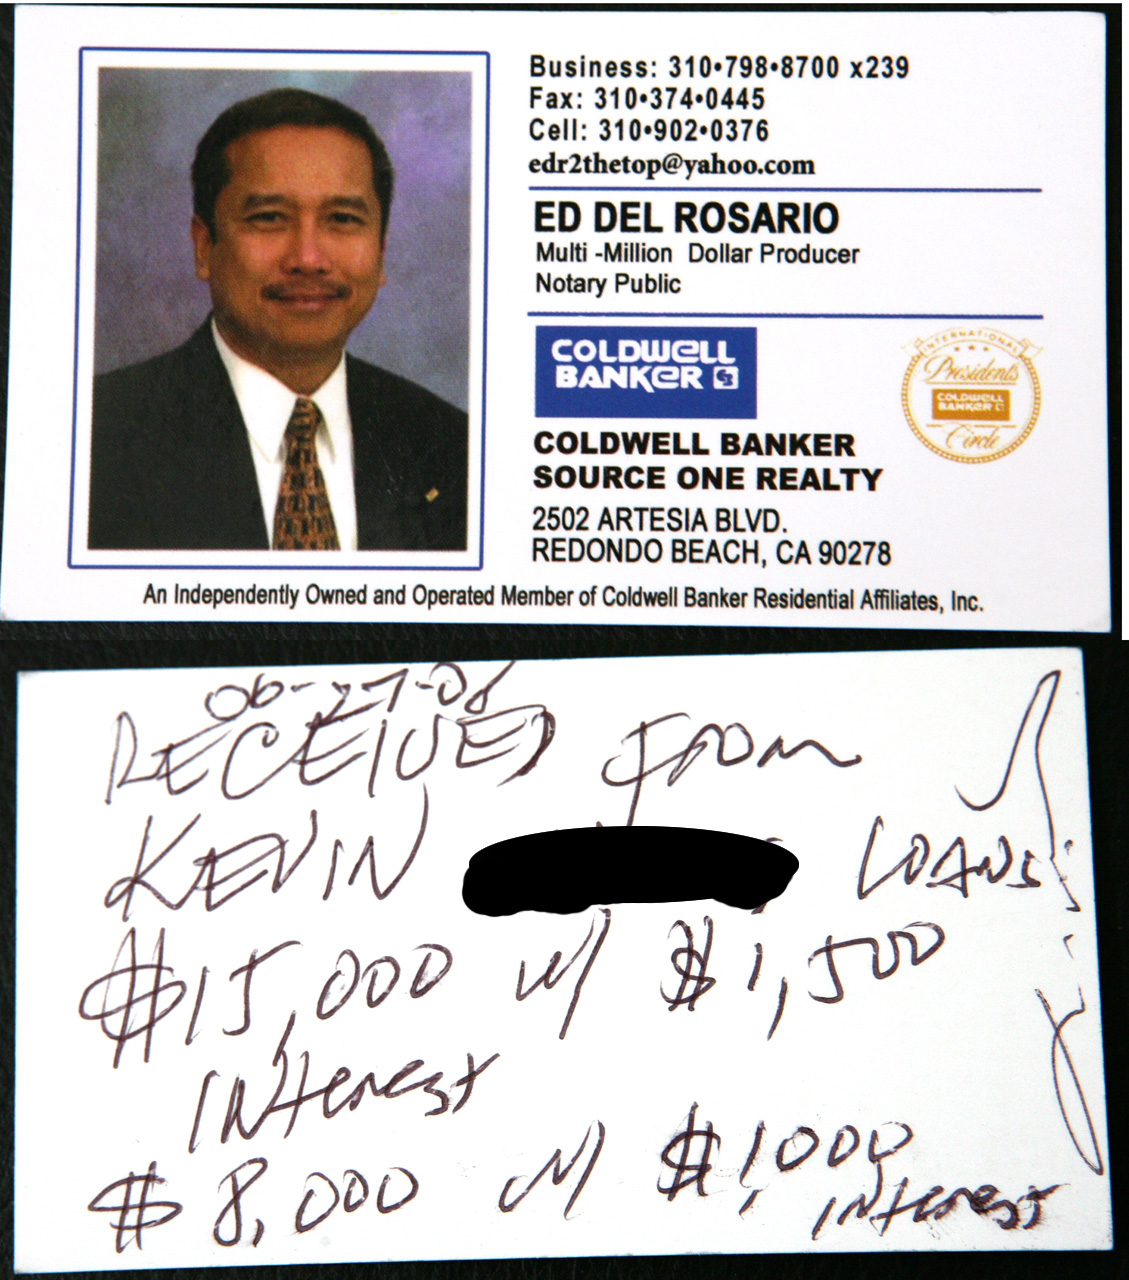 Business: 310•798•8700 x239
Fax: 310•374•0445
Cell: 310•902•0376
edr2thetop@yahoo.com
ED DEL ROSARIO
Multi -Million Dollar Producer
Notary Public
COLDWELL
BANKER
INTERNATIONAL
Presidents
COLDWELL
BANKER
Circle
COLDWELL BANKER
SOURCE ONE REALTY
2502 ARTESIA BLVD.
REDONDO BEACH, CA 90278
An Independently Owned and Operated Member of Coldwell Banker Residential Affiliates, Inc.
06-27-06
RECEIVED from
KEVIN LOANS
$15,000 w/ $1,500
INterest
$8,000 w/ $1,000
INterest